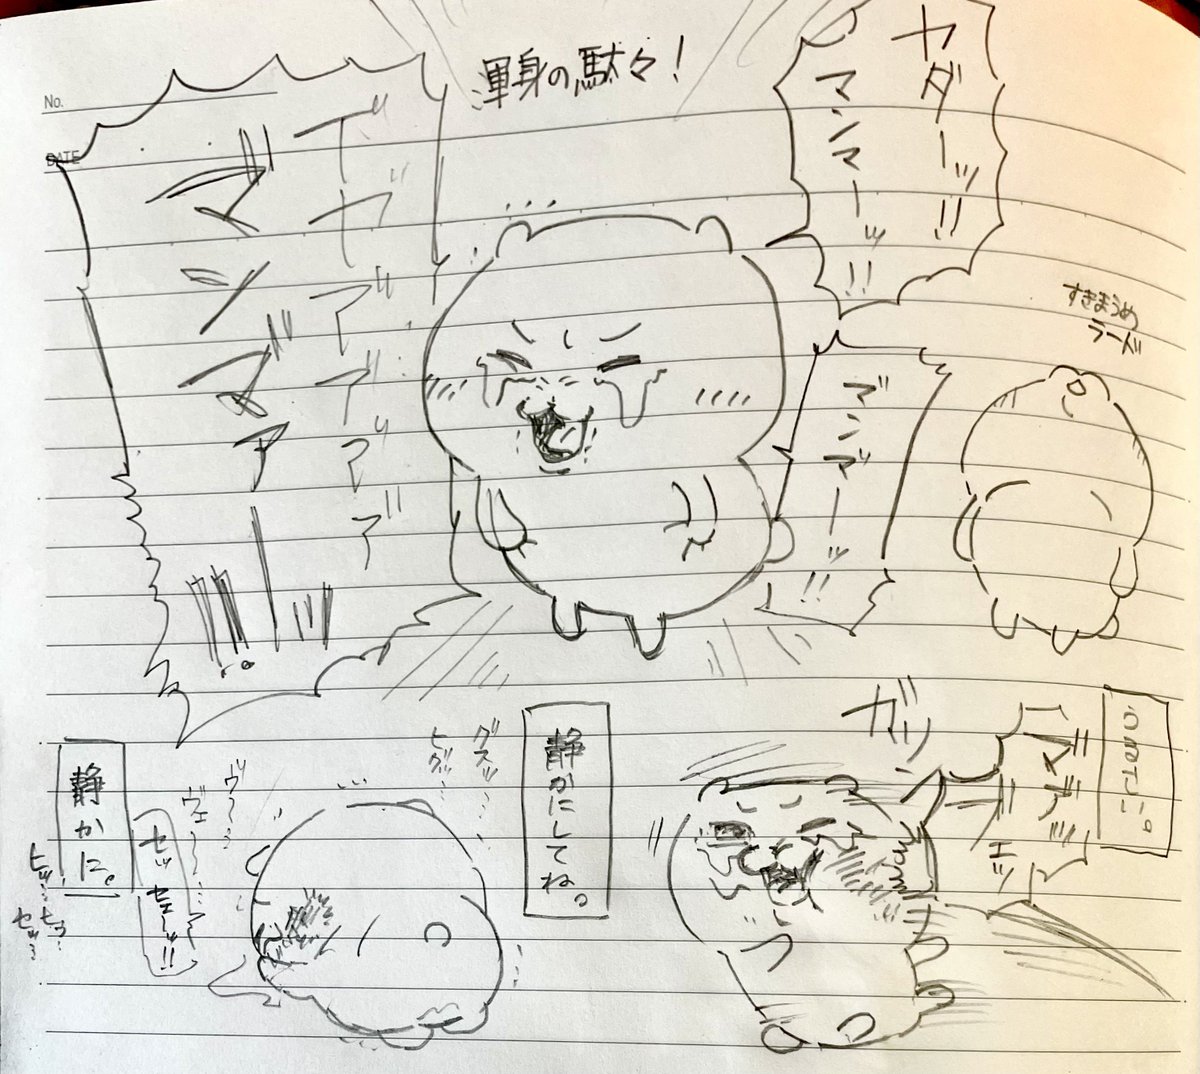 No.
DATE
渾身の駄々！
ヤダーーッ!!
マンマーーッ!!
マ゛ンマ゛ーーッ!!
イ゛ヤ゛ア゛ア゛ア゛ア゛
マ゛ンマ゛ァーー!!!
すきまうめ
ラード
ガッ
静かにしてね。
グスッ…
ヒグッ…
ヴ〜…
ヴェ〜…
セッセェーッ!!
静かに。
ヒッ…
セッ…